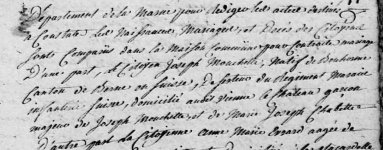 Département de la Marne pour rediger les actes destinés
a Constater les Naissances, Mariages, et Décès des Citoyens
sont Comparus dans la maison Commune pour Contracter mariage
D'une part, Citoyen Joseph Mouchette, Natif de
Canton de Berne en Suisse, Deserteur du Regiment
infanterie Suisse, domicilié a vienne le Château garçon
majeur de Joseph Mouchette et de Marie Joseph Chatelle
D'autre part la Citoyenne anne Marie Evrard aagée de